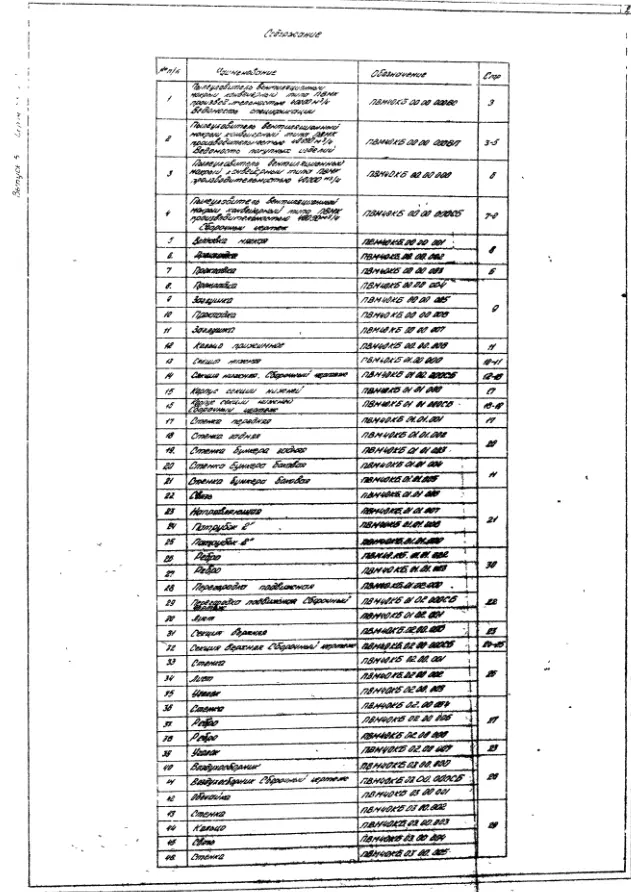 Содержание
№ п/п Наименование Обозначение Стр
1 Пылеуловитель вентиляционный мокрый конвейерный типа ПВМК производительностью 40000 м³/ч Ведомость спецификации ПВМ40КБ 00 00 000ВС 3
2 Пылеуловитель вентиляционный мокрый конвейерный типа ПВМК производительностью 40000 м³/ч Ведомость покупных изделий ПВМ40КБ 00 00 000ВП 3-5
3 Пылеуловитель вентиляционный мокрый конвейерный типа ПВМК производительностью 40000 м³/ч ПВМ40КБ 00 00 000 6
4 Пылеуловитель вентиляционный мокрый конвейерный типа ПВМК производительностью 40000 м³/ч Сборочный чертеж ПВМ40КБ 00 00 000СБ
5 ПВМ40КБ 00 00 001
6 Прокладка ПВМ40КБ 00 00 002 8
7 Прокладка ПВМ40КБ 00 00 003
8 Прокладка ПВМ40КБ 00 00 004
9 Заглушка ПВМ40КБ 00 00 005 9
10 Прокладка ПВМ40КБ 00 00 006
11 Заглушка ПВМ40КБ 00 00 007
12 Кольцо прижимное ПВМ40КБ 00 00 008 11
13 Секция нижняя ПВМ40КБ 01 00 000 10-11
14 Секция нижняя. Сборочный чертеж ПВМ40КБ 01 00 000СБ
15 Корпус секции нижней ПВМ40КБ 01 01 000 17
16 Корпус секции нижней Сборочный чертеж ПВМ40КБ 01 01 000СБ
17 Стенка передняя ПВМ40КБ 01.01.001 19
18 Стенка задняя ПВМ40КБ 01.01.002 20
19 Стенка бункера задняя ПВМ40КБ 01 01 003
20 Стенка бункера боковая ПВМ40КБ 01 01 004
21 Стенка бункера боковая ПВМ40КБ 01.01.005
22 Связь ПВМ40КБ 01 01 006
23 Направляющая ПВМ40КБ 01 01 007 21
24 Патрубок 2" ПВМ40КБ 01.01.008
25 Патрубок 8"
26 Ребро
27 Ребро 30
28 Перегородка подвижная ПВМ40КБ 01 02 000
29 Перегородка подвижная Сборочный чертеж ПВМ40КБ 01 02 000СБ 22
30 Лист ПВМ40КБ 01 02 001
31 Секция верхняя ПВМ40КБ 02 00 000 23
32 Секция верхняя Сборочный чертеж ПВМ40КБ 02 00 000СБ 24-25
33 Стенка ПВМ40КБ 02 00 001
34 Лист ПВМ40КБ 02 00 002 26
35 Уголок ПВМ40КБ 02 00 003
36 Стенка ПВМ40КБ 02 00 004
Ребро ПВМ40КБ 02 00 005 27
38 Ребро ПВМ40КБ 02 00 006
39 Уголок ПВМ40КБ 02 00 007 23
40 Воздухосборник ПВМ40КБ 03 00 000
41 Воздухосборник Сборочный чертеж ПВМ40КБ 03.00.000СБ 28
42 Обечайка ПВМ40КБ 03 00 001
43 Стенка ПВМ40КБ 03 00 002
44 Кольцо ПВМ40КБ 03 00 003 29
45 ПВМ40КБ 03 00 004
46 Стенка ПВМ40КБ 03 00 005
Выпуск 5